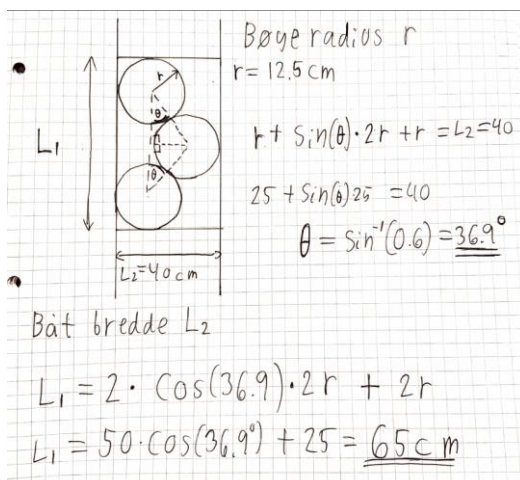 Bøye radius r
r = 12.5 cm
r
θ
L₁
r + sin(θ)·2r + r = L₂ = 40
θ
25 + sin(θ)·25 = 40
θ = sin⁻¹(0.6) = 36.9°
L₂=40cm
Båt bredde L₂
L₁ = 2· Cos(36.9)·2r + 2r
L₁ = 50·cos(36.9°) + 25 = 65cm